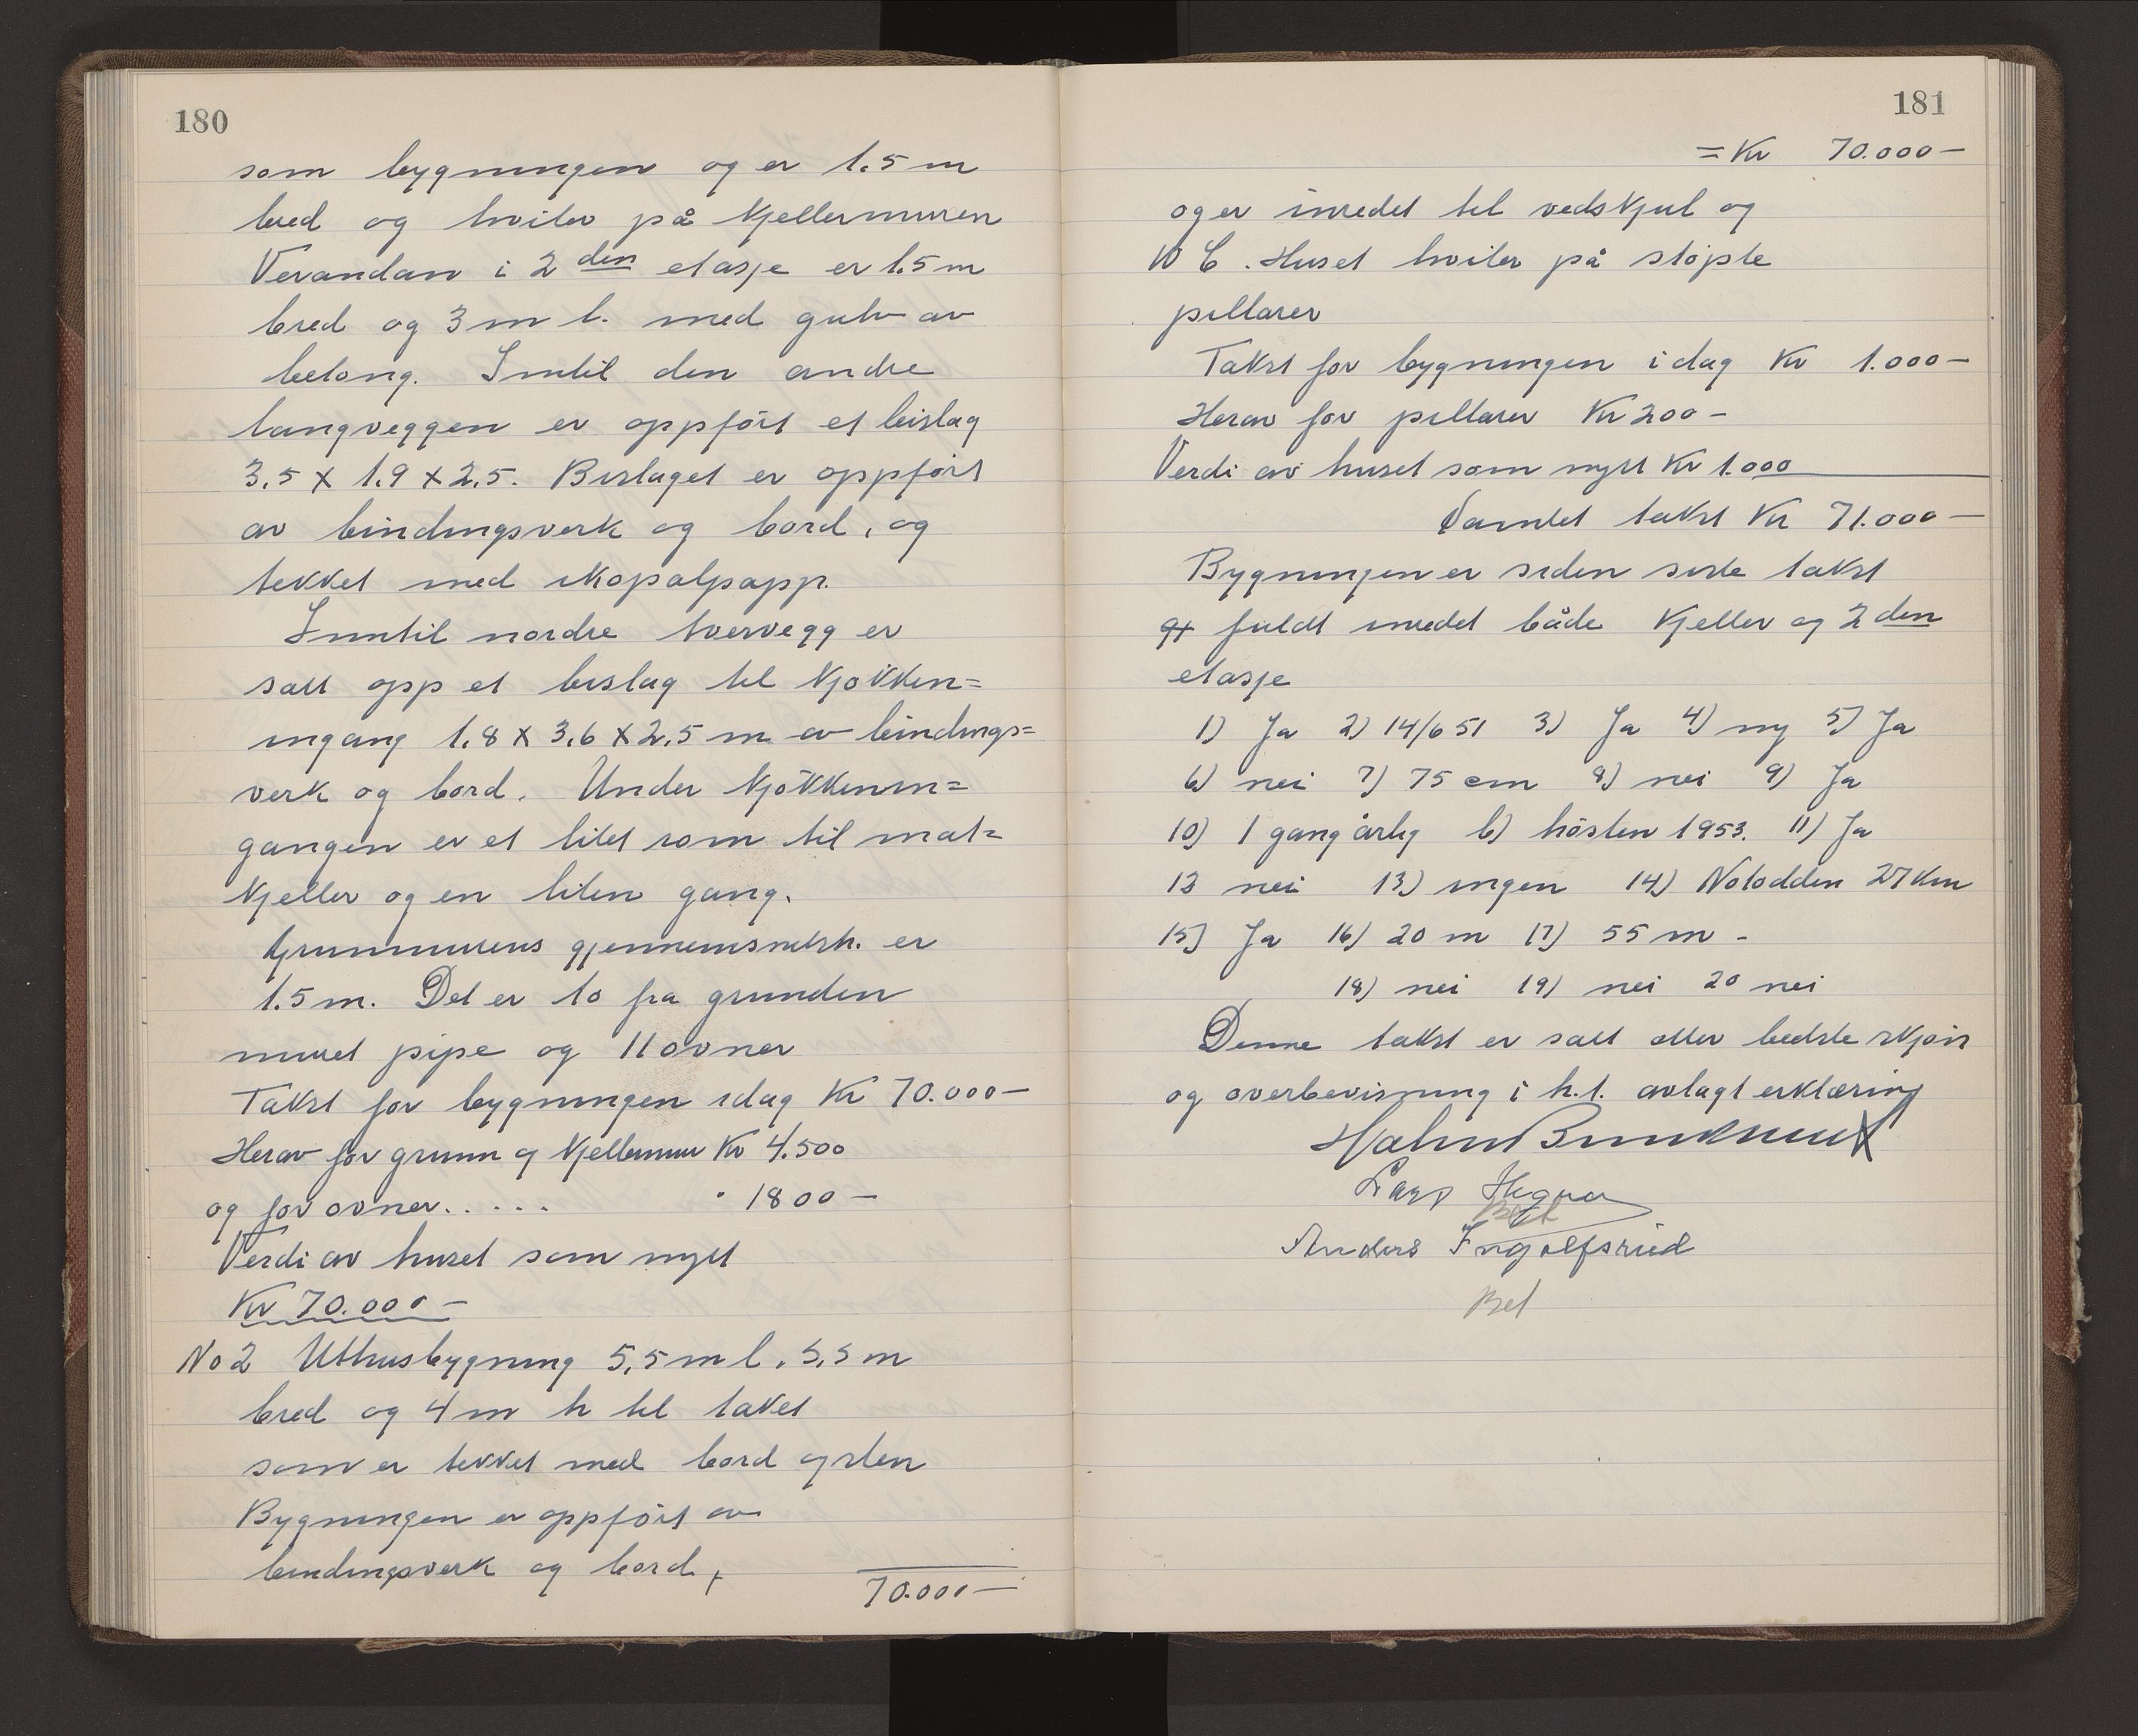 180
som bygningen og er 1.5 m
bred og hviler på kjellermuren
Verandan i 2 den etasje er 1.5 m
bred og 3 m l. med gulv av
betong. Inntil den andre
langveggen er oppført et bislag
3.5 x 1.9 x 2.5. Bislaget er oppført
av bindingsverk og bord, og
tekket med ikopalpapp.
Inntil nordre tvervegg er
satt opp et bislag til kjøkken=
ingang 1.8 x 3.6 x 2.5 m av bindings=
verk og bord. Under kjøkkenin=
gangen er et litet rom til mat=
kjeller og en liten gang.
Grunnmurens gjennemsnitsh. er
1.5 m. Det er to fra grunden
muret pipe og 11 ovner
Takst for bygningen idag Kr 70.000 —
Herav for grunn og kjellermur Kr 4.500
og for ovner . . . . . " 1800 —
Verdi av huset som nytt
Kr 70.000 —
No 2 Uthusbygning 5,5 m l. 5,5 m
bred og 4 m h til taket
som er tekket med bord og sten
Bygningen er oppført av
bindingsverk og bord,
70.000 —
181
= Kr 70.000 —
og er inredet til vedskjul og
W C. Huset hviler på støpte
pillarer
Takst for bygningen i dag Kr 1.000 —
Herav for pillarer Kr 200 —
Verdi av huset som nytt Kr 1.000
Samlet takst Kr 71.000 —
Bygningen er siden siste takst
fuldt inredet både kjeller og 2 den
etasje
1) Ja 2) 14/6 51 3) Ja 4) ny 5) Ja
6) nei 7) 75 cm 8) nei 9) Ja
10) 1 gang årlig b) høsten 1953. 11) Ja
12 nei 13) ingen 14) Notodden 27 Km
15) Ja 16) 20 m 17) 55 m -
18) nei 19) nei 20 nei
Denne takst er satt etter bedste skjøn
og overbevisning i h.t. avlagt erklæring
Lars
Anders Ingolfsrud
Bet